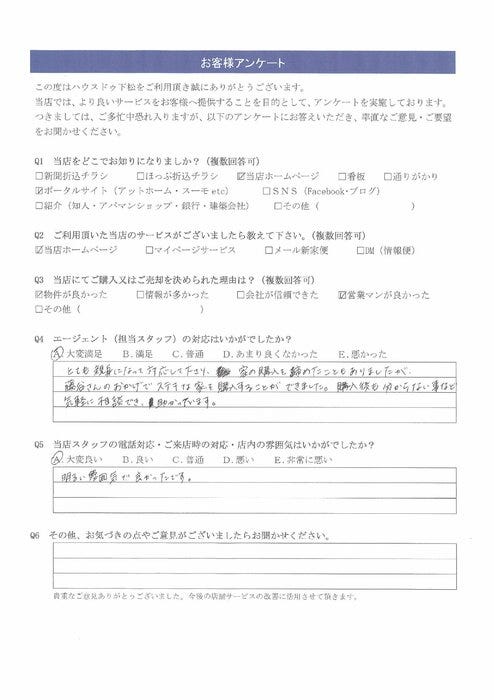 お客様アンケート
この度はハウスドゥ下松をご利用頂き誠にありがとうございます。
当店では、より良いサービスをお客様へ提供することを目的として、アンケートを実施しております。
つきましては、ご多忙中恐れ入りますが、以下のアンケートにお答えいただき、率直なご意見・ご要望
をお聞かせください。
Q1 当店をどこでお知りになりましか？（複数回答可）
□新聞折込チラシ □ほっぷ折込チラシ ☑当店ホームページ □看板 □通りがかり
☑ポータルサイト（アットホーム・スーモ etc） □ＳＮＳ（Facebook・ブログ）
□紹介（知人・アパマンショップ・銀行・建築会社） □その他（ ）
Q2 ご利用頂いた当店のサービスがございましたら教えて下さい。（複数回答可）
☑当店ホームページ □マイページサービス □メール新家便 □DM（情報便）
Q3 当店にてご購入又はご売却を決められた理由は？（複数回答可）
☑物件が良かった □情報が多かった □会社が信頼できた ☑営業マンが良かった
□その他（ ）
Q4 エージェント（担当スタッフ）の対応はいかがでしたか？
A.大変満足 B.満足 C.普通 D.あまり良くなかった E.悪かった
とても親身になって対応して下さり、家の購入を諦めたこともありましたが、
藤谷さんのおかげでステキな家を購入することができました。購入後も分からない事など
気軽に相談でき、助かっています。
Q5 当店スタッフの電話対応・ご来店時の対応・店内の雰囲気はいかがでしたか？
A.大変良い B.良い C.普通 D.悪い E.非常に悪い
明るい雰囲気で良かったです。
Q6 その他、お気づきの点やご意見がございましたらお聞かせください。
貴重なご意見ありがとうございました。今後の店舗サービスの改善に活用させて頂きます。